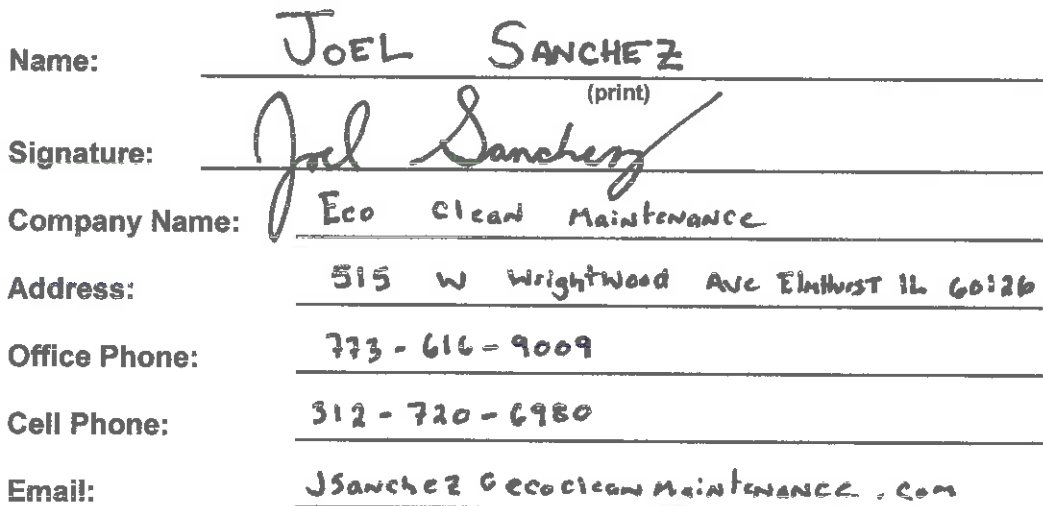 Name: JOEL SANCHEZ
(print)
Signature: Joel Sanchez
Company Name: Eco Clean Maintenance
Address: 515 W Wrightwood Ave Elmhurst IL 60126
Office Phone: 773-616-9009
Cell Phone: 312-720-6980
Email: JSanchez@ecocleanmaintenance.com